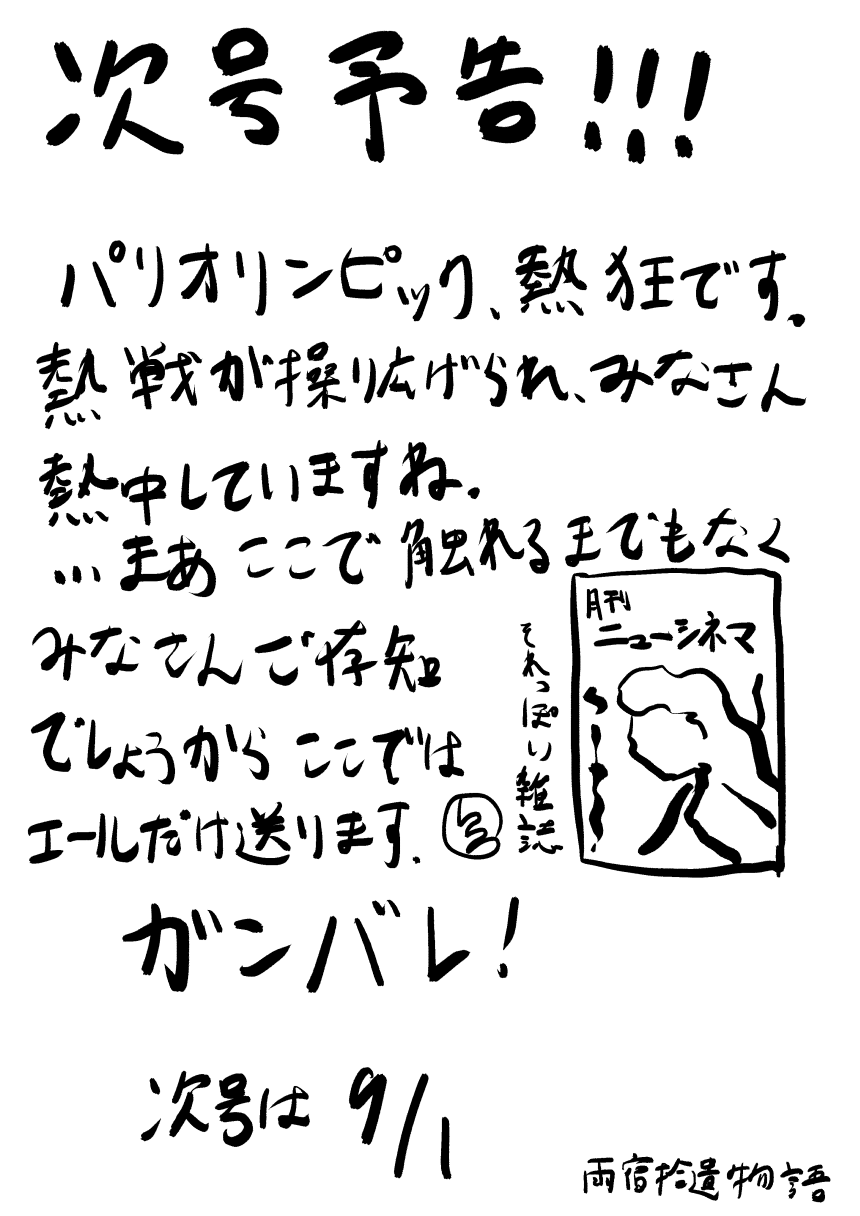 次号予告!!!
パリオリンピック、熱狂です。
熱戦が操り広げられ、みなさん
熱中していますね。
…まあここで触れるまでもなく
みなさんご存知
でしょうからここでは
エールだけ送ります。
それっぽい雑誌
月刊
ニューシネマ
ガンバレ!
次号は9/1
雨宿拾遺物語